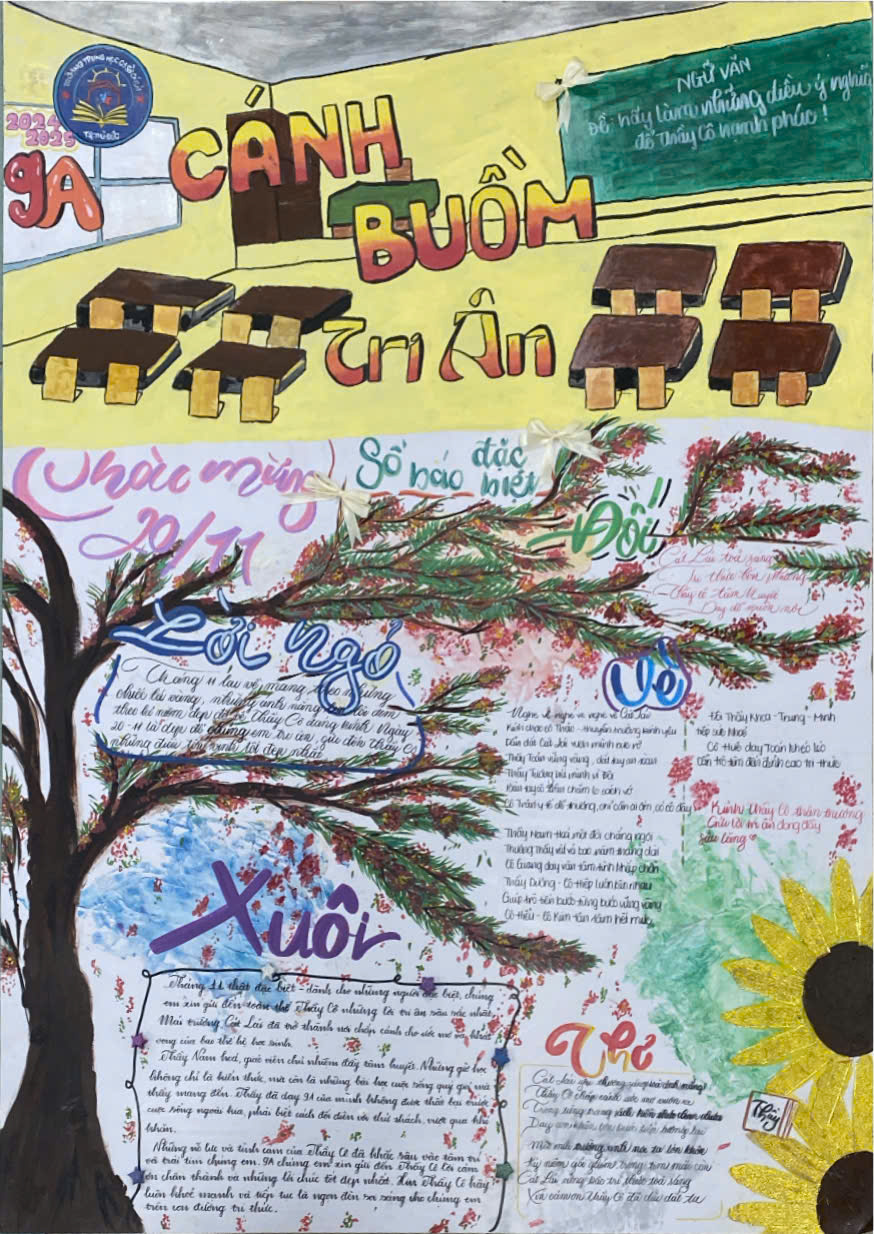 TRƯỜNG TRUNG HỌC CƠ SỞ CÁT LÁI
TP. THỦ ĐỨC
2024
2025
9A
CÁNH
BUỒM
Tri Ân
NGỮ VĂN
Đề: hãy làm những điều ý nghĩa
để Thầy Cô hạnh phúc!
Chúc mừng
20/11
Số báo đặc biệt
Đối
Cát Lái toả sáng
Tri thức bốn phương
Thầy cô tâm huyết
Dạy dỗ
Lời ngỏ
Tháng 11 lại về, mang theo những
chiếc lá vàng, những ánh nắng
theo kỉ niệm đẹp đẽ về Thầy Cô đáng kính. Ngày
20-11 là dịp để chúng em tri ân, gửi đến thầy cô
những điều tốt đẹp nhất.
Vè
Nghe vè nghe ve nghe vè Cát Lái
Kính chúc cô Thảo - thuyền trưởng kính yêu
Dẫn dắt Cát Lái vươn mình
Thầy Toàn vững vàng,
Thầy Tường bụi mình vì Đội
cô Thắm chăm lo sách vở
Thầy Nam Hoá một đời chẳng ngơi
Thường Thầy vất vả bao năm tháng dài
Cô Giang dạy văn tâm tình
Thầy Dưỡng - Cô Hiệp luôn bên nhau
Giúp trò tiến bước từng bước vững vàng
Cô Hiếu - Cô Kim tận tâm hết mực
Đội Thầy Khoa - Trung - Minh
tiếp sức
Cô Huê dạy Toán khéo léo
Dẫn trò tìm đến đỉnh cao tri thức
Kính Thầy Cô thân thương
Gửi lời tri ân dâng đầy
sâu lắng
Xuôi
Tháng 11 thật đặc biệt - dành cho những người đặc biệt, chúng
em xin gửi đến toàn thể Thầy Cô những lời tri ân sâu sắc nhất.
Mái trường Cát Lái đã trở thành nơi chắp cánh cho ước mơ và khát
vọng của bao thế hệ học sinh.
Thầy Nam hoá, giáo viên chủ nhiệm đầy tâm huyết. Những giờ học
không chỉ là kiến thức, mà còn là những bài học cuộc sống quý giá mà
thầy mang đến. Thầy đã dạy 9A của mình không được thất bại trước
cuộc sống ngoài kia, phải biết cách đối diện với thử thách, vượt qua khó
khăn.
Những nỗ lực và tình cảm của Thầy Cô đã khắc sâu vào tâm trí
và trái tim chúng em. 9A chúng em xin gửi đến Thầy Cô lời cảm
ơn chân thành và những lời chúc tốt đẹp nhất. Xin Thầy Cô hãy
luôn khoẻ mạnh và tiếp tục là ngọn đèn soi sáng cho chúng em
trên con đường tri thức.
Thơ
Cát Lái yêu thương
Thầy Cô chắp cánh ước mơ vươn xa
Trong từng trang sách
Dạy em
Mái trường nơi ta lớn khôn
Kỷ niệm trong tim
Cát Lái toả sáng
Xin cảm ơn Thầy Cô đã dìu dắt ta
Thầy